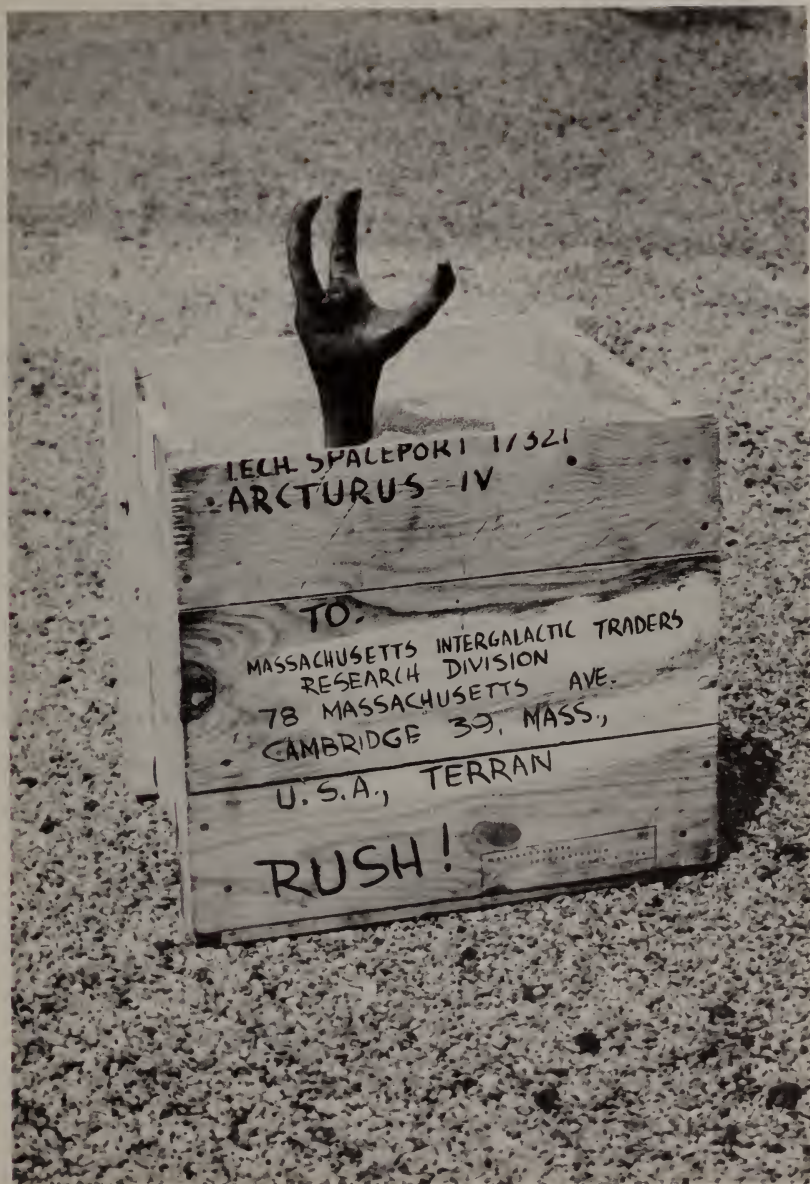 TECH. SPACEPORT 17321
ARCTURUS IV
TO:
MASSACHUSETTS INTERGALACTIC TRADERS
RESEARCH DIVISION
78 MASSACHUSETTS AVE.
CAMBRIDGE 39, MASS.,
U.S.A., TERRAN
RUSH!